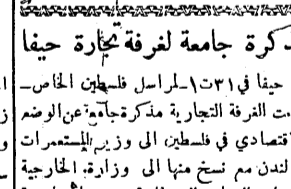 ذكرة جامعة لغرفة تجارة حيفا
حيفا في ٣١ ت ١ ـ لمراسل فلسطين الخاص ـ
ت الغرفة التجارية مذكرة جامعة عن الوضع
قتصادي في فلسطين الى وزير المستعمرات
لندن مع نسخ منها الى وزارة الخارجية